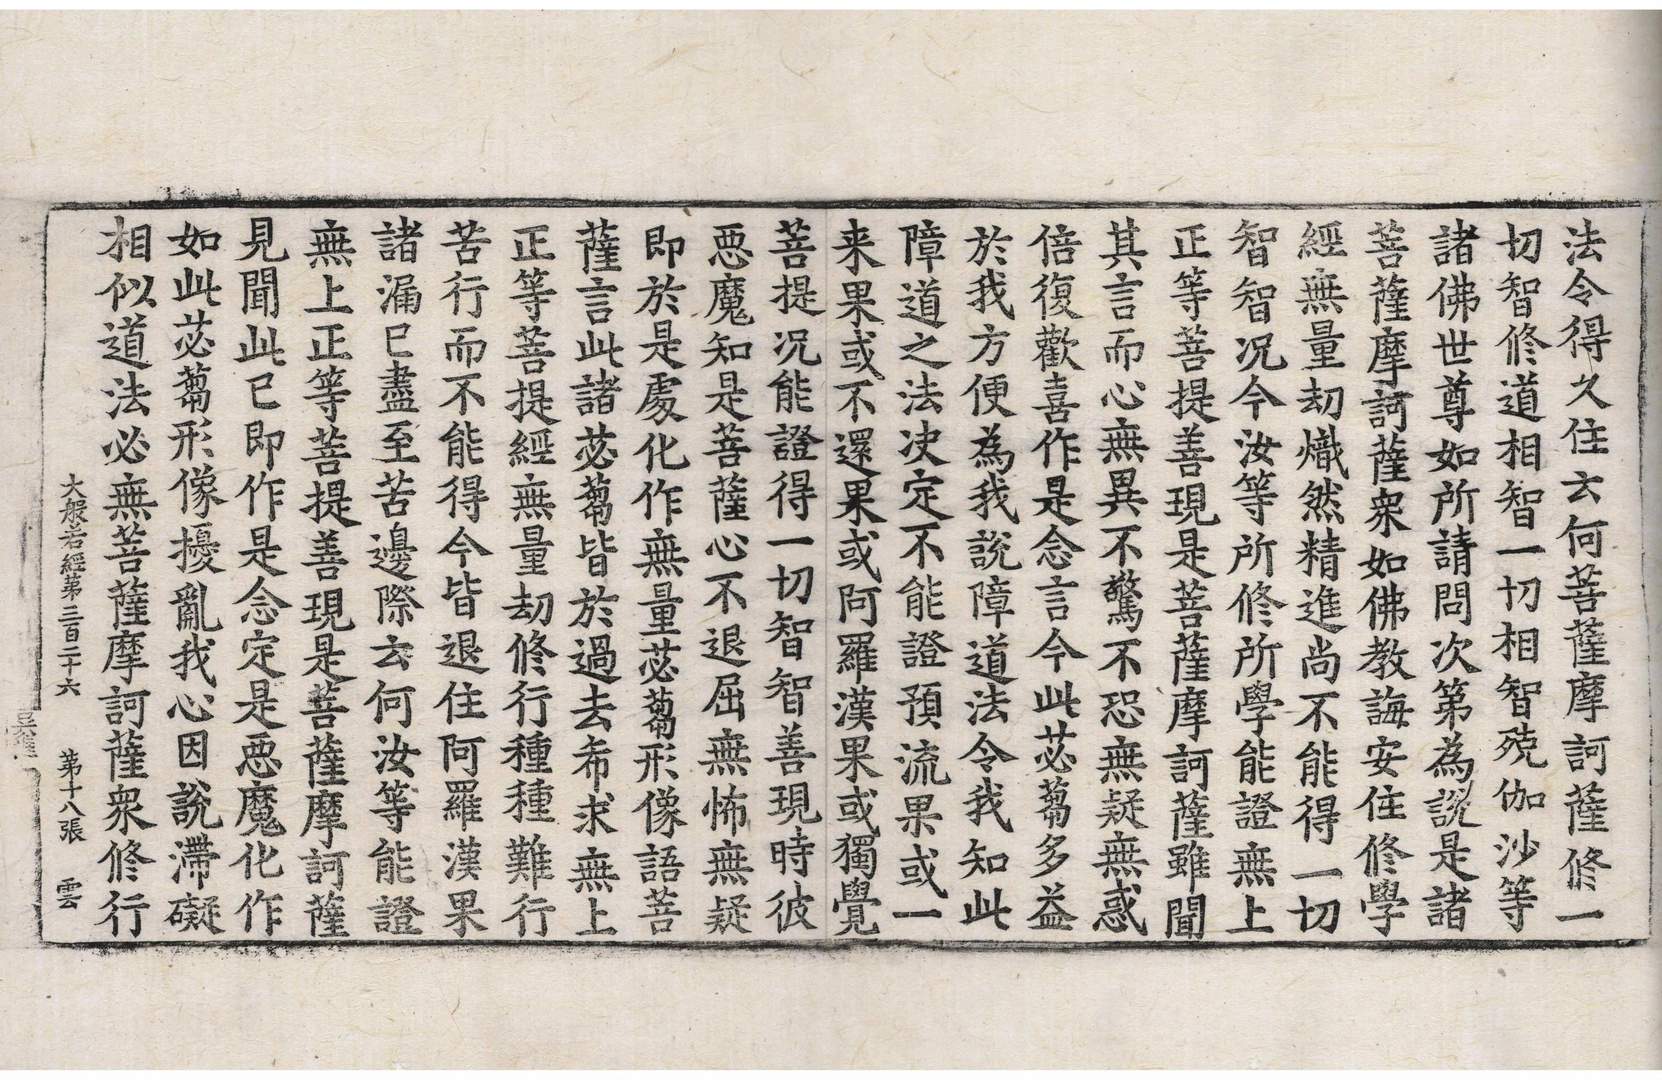 法令得久住云何菩薩摩訶薩修一
切智修道相智一切相智殑伽沙等
諸佛世尊如所請問次第為說是諸
菩薩摩訶薩衆如佛教誨安住修學
經無量劫熾然精進尚不能得一切
智智況今汝等所修所學能證無上
正等菩提善現是菩薩摩訶薩雖聞
其言而心無異不驚不恐無疑無惑
倍復歡喜作是念言今此苾蒭多益
於我方便為我說障道法令我知此
障道之法决定不能證預流果或一
来果或不還果或阿羅漢果或獨覺
菩提況能證得一切智智善現時彼
惡魔知是菩薩心不退屈無怖無疑
即於是處化作無量苾蒭形像語菩
薩言此諸苾蒭皆於過去希求無上
正等菩提經無量劫修行種種難行
苦行而不能得今皆退住阿羅漢果
諸漏已盡至苦邊際云何汝等能證
無上正等菩提善現是菩薩摩訶薩
見聞此已即作是念定是惡魔化作
如此苾蒭形像擾亂我心因說滯礙
相似道法必無菩薩摩訶薩衆修行
大般若經第三百二十六 第十八張 雲